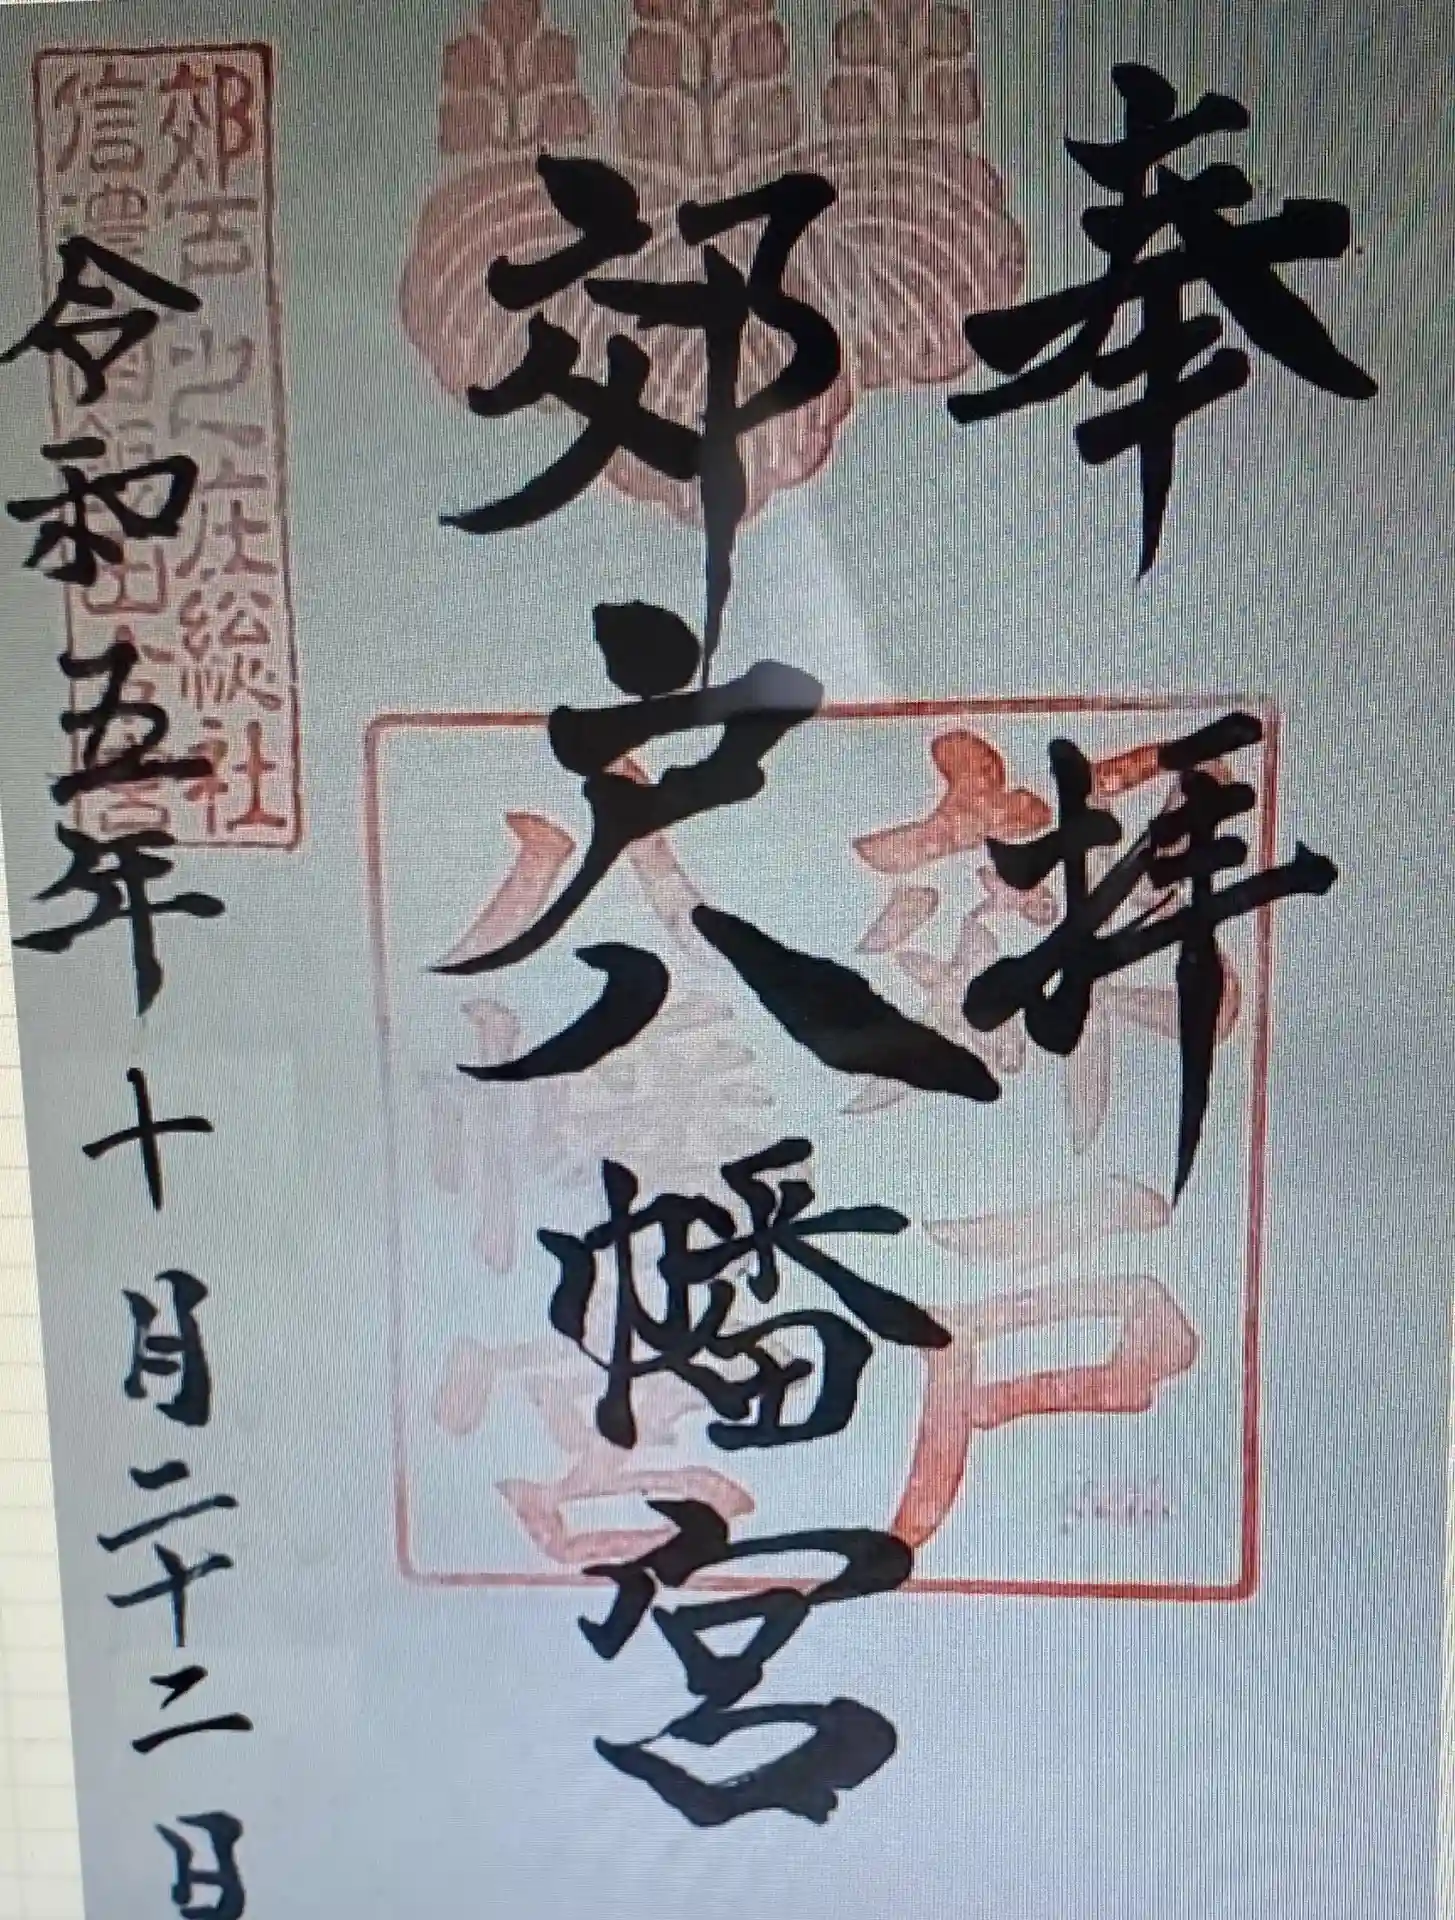 奉拝
郊戸八幡宮
郊戸八幡宮
令和五年十月二十二日
郊古之庄総社